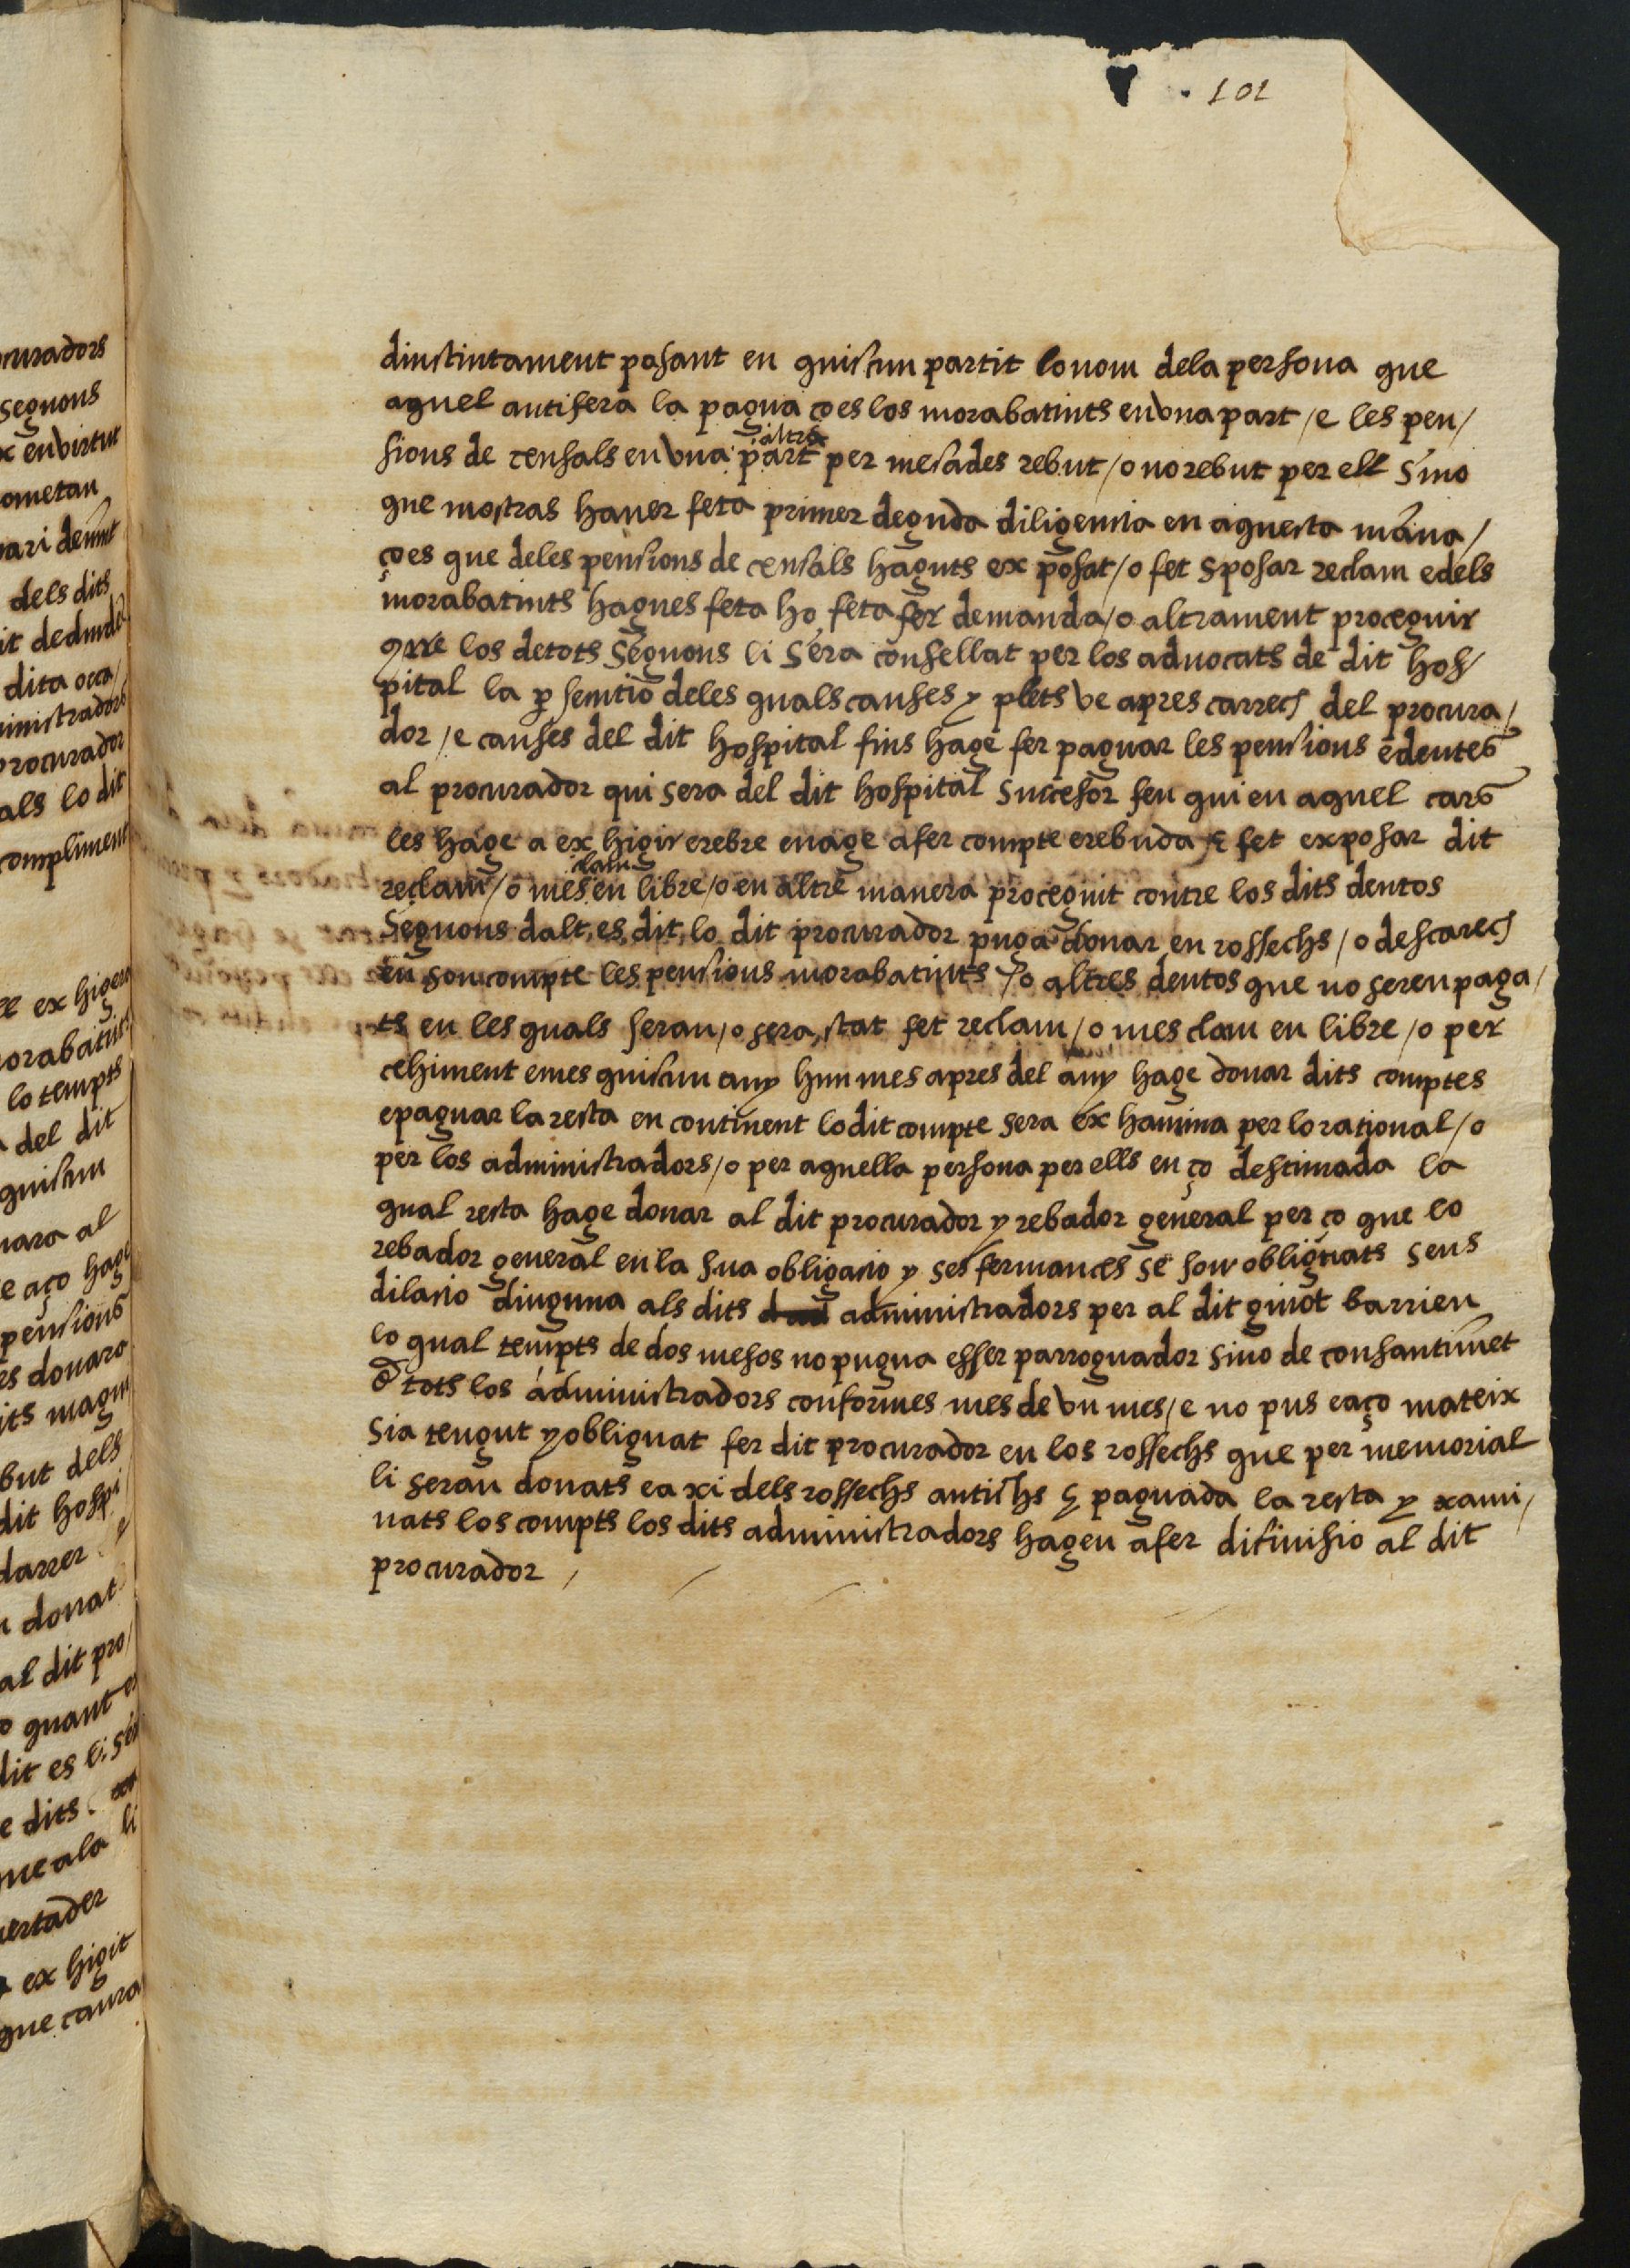 101
dinstintament posant en quiscun partit lo nom dela persona que
aquel antifera la pagua ço es los morabatints en vna part / e les pen /
sions de censals en vna altra part per mesades rebut / o no rebut per ell sino
que mostras hauer feta primer deguda diligencia en aquesta mana /
ço es que deles pensions de censals haguts ex posat / o fet sposar reclam e dels
morabatints hagues feta ho feta fer demanda / o altrament proceguir
los detots seguons li sera consellat per los aduocats de dit hos /
pital la semtio deles quals causes y plets ve apres carrech del procura /
dor / e causes del dit hospital fins hage fer paguar les pensions e deutes
al procurador qui sera del dit hospital succesor seu qui en aquel cars
les hage a ex higir e rebre e nage a fer compte e rebuda / e fet exposar dit
reclam / o mes clam en libre / o en altre manera proceguit contre los dits deutos
seguons dalt es dit lo dit procurador puga donar en rossechs / o descarech
en son compte les pensions morabatints / o altres deutos que no seren paga /
ts en les quals seran / o sera stat fet reclam / o mes clam en libre / o per
cehiment e mes quiscun any hun mes apres del any hage donar dits comptes
e paguar la resta en continent lo dit compte sera ex hamina per lo rational / o
per los administradors / o per aquella persona per ells en ço destinada la
qual resta hage donar al dit procurador y rebador general per ço que lo
rebador general en la sua obligasio y ses fermances se son obliguats sens
dilasio dinguna als dits administradors per al dit guiot barrieu
lo qual tempts de dos mesos no pugua esser parroguador sino de consantimet
d tots los administradors conformes mes de vn mes / e no pus e aço mateix
sia tengut y obliguat fer dit procurador en los rossechs que per memorial
li seran donats e a xi dels rossechs antichs y paguada la resta y xami /
nats los compts los dits administradors hagen a fer difinisio al dit
procurador /